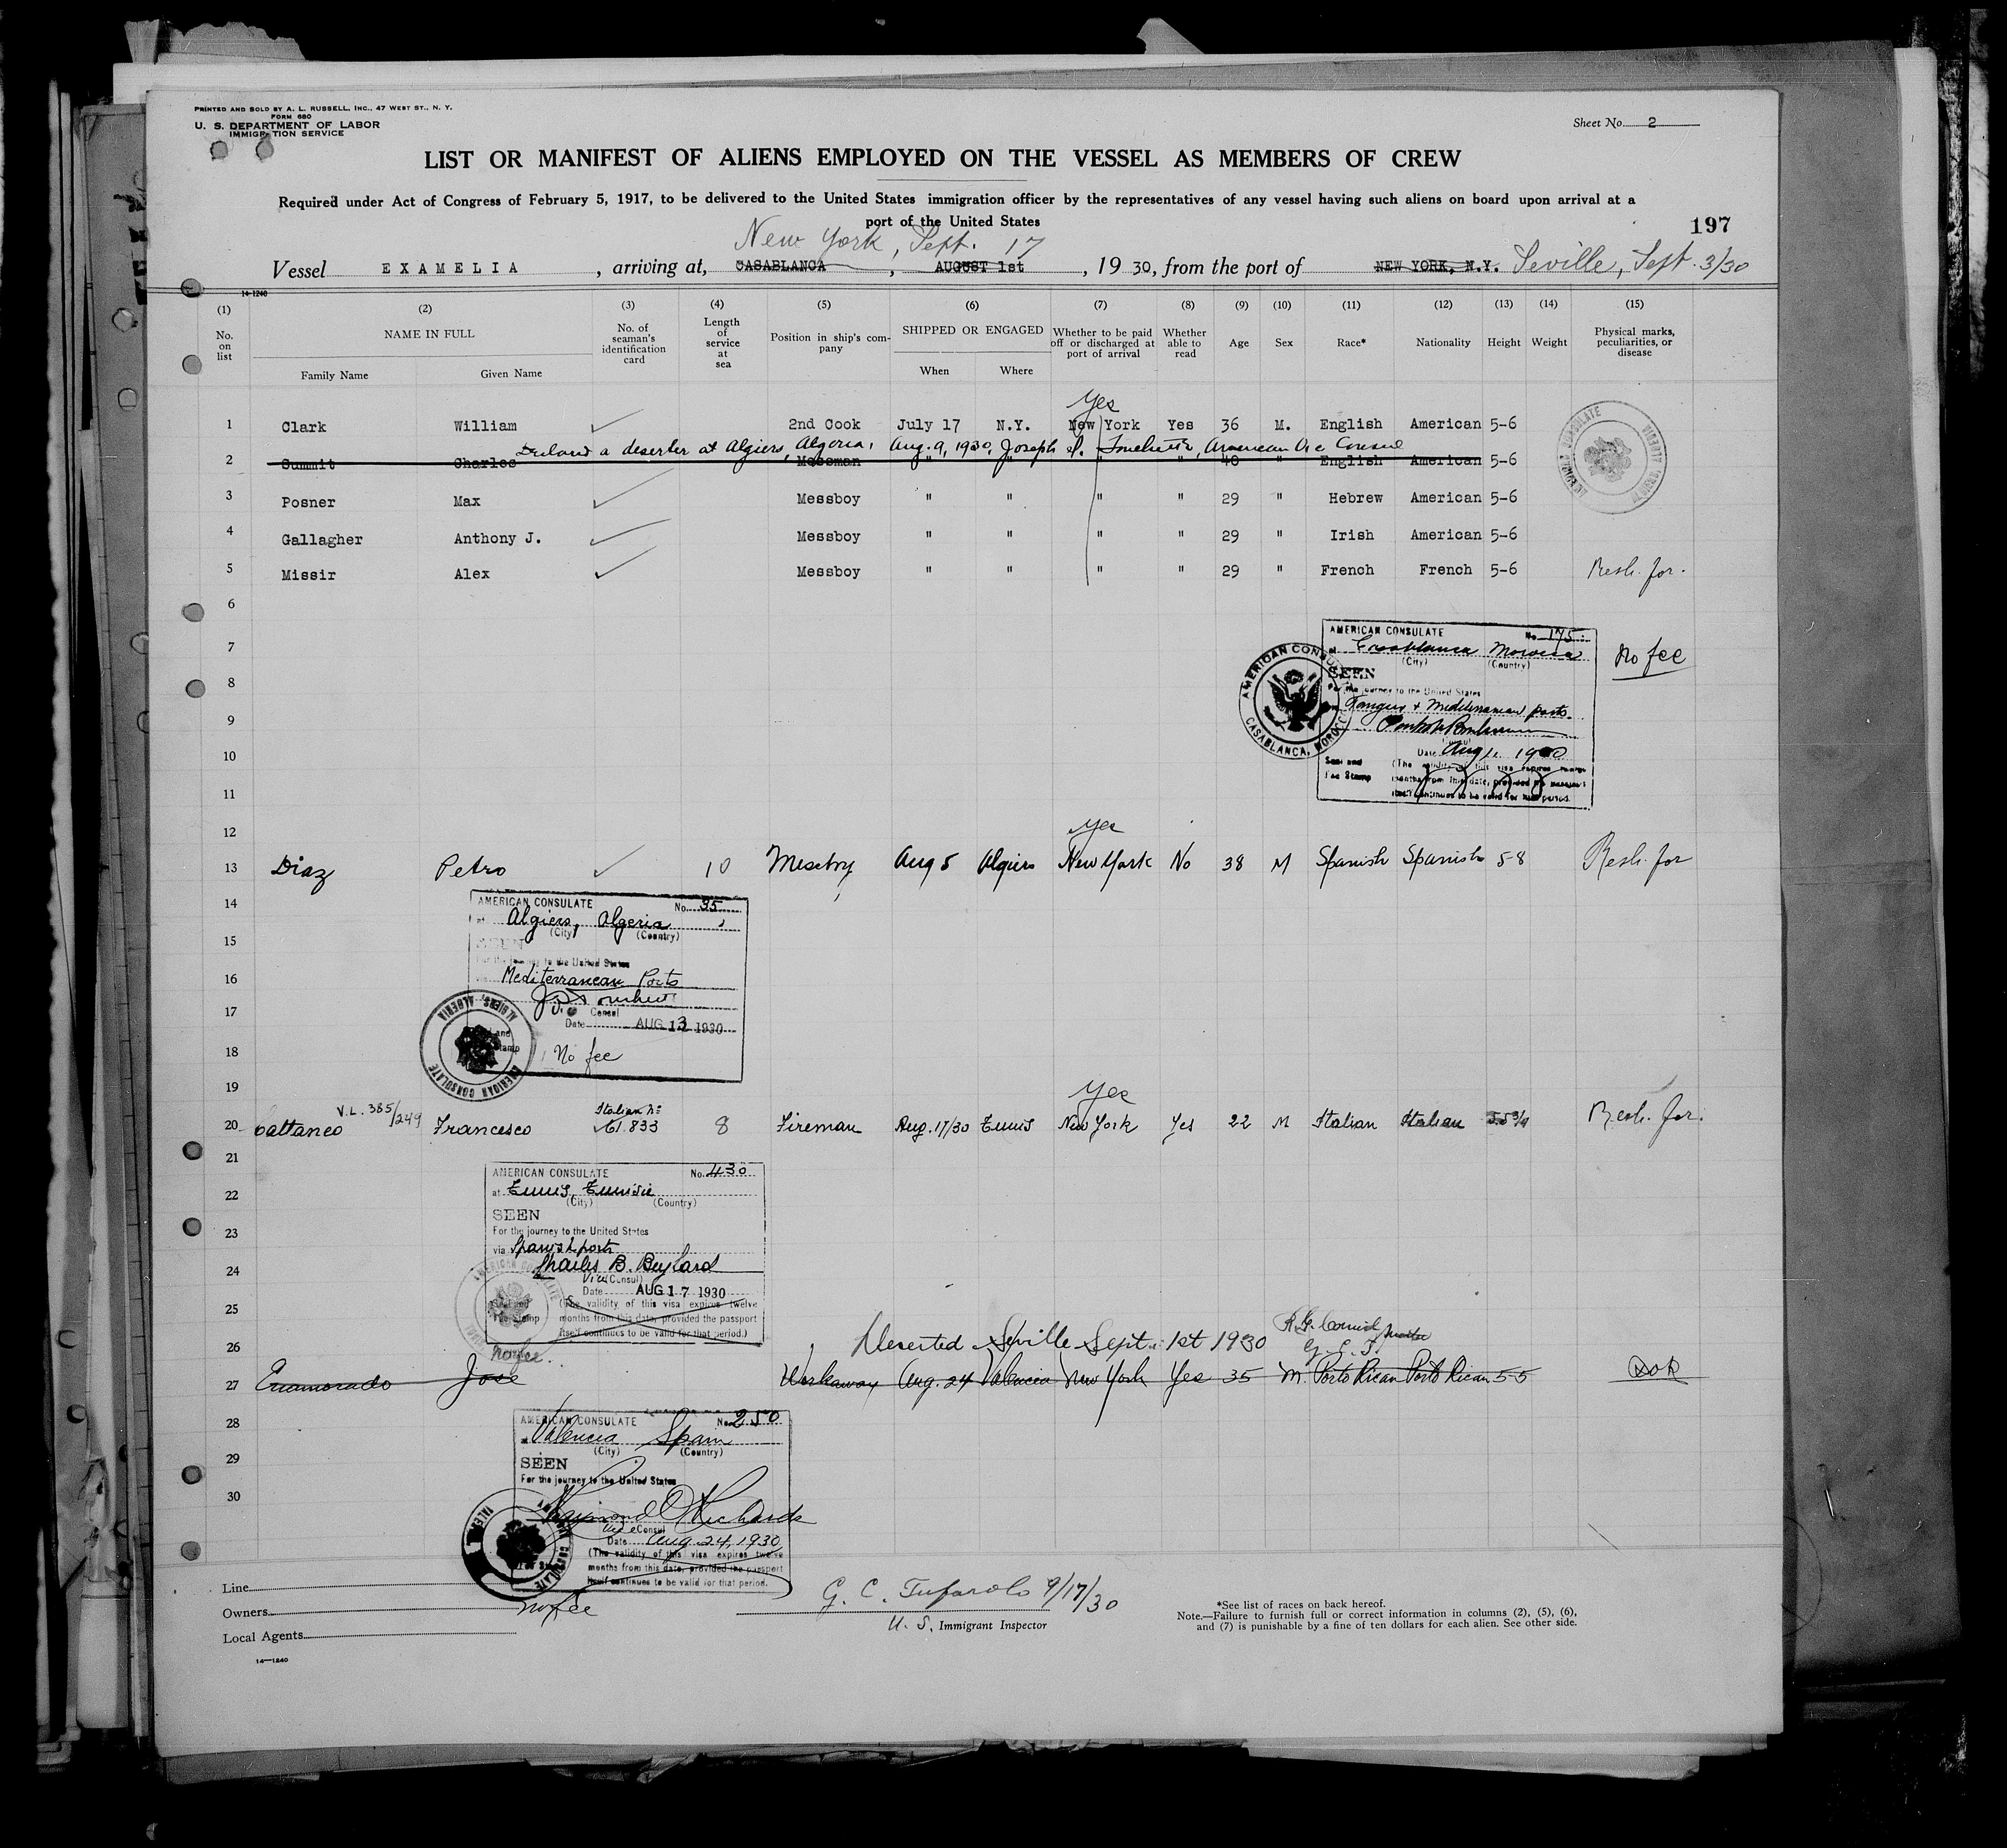 PRINTED AND SOLD BY A. L. RUSSELL, INC., 47 WEST ST., N. Y.
FORM 680
U. S. DEPARTMENT OF LABOR
IMMIGRATION SERVICE
Sheet No. 2
LIST OR MANIFEST OF ALIENS EMPLOYED ON THE VESSEL AS MEMBERS OF CREW
Required under Act of Congress of February 5, 1917, to be delivered to the United States immigration officer by the representatives of any vessel having such aliens on board upon arrival at a
port of the United States
197
New York, Sept. 17
Vessel EXAMELIA, arriving at, CASABLANCA, AUGUST 1st, 1930, from the port of NEW YORK, N.Y. Seville, Sept. 3/30
14-1240
(1) (2) (3) (4) (5) (6) (7) (8) (9) (10) (11) (12) (13) (14) (15)
No. on list NAME IN FULL No. of seaman's identification card Length of service at sea Position in ship's company SHIPPED OR ENGAGED Whether to be paid off or discharged at port of arrival Whether able to read Age Sex Race* Nationality Height Weight Physical marks, peculiarities, or disease
Family Name Given Name When Where
Yes
1 Clark William 2nd Cook July 17 N.Y. New York Yes 36 M. English American 5-6
a deserter at Algiers, Algeria, Aug. 9, 1930, Joseph I. Touchette, American Vice Consul
2 Summit Charles Messman " " " 40 " English American 5-6
3 Posner Max Messboy " " " " 29 " Hebrew American 5-6
4 Gallagher Anthony J. Messboy " " " " 29 " Irish American 5-6
5 Missir Alex Messboy " " " " 29 " French French 5-6 Resh. for.
6
7
8
9
10
11
12
AMERICAN CONSULATE No. 175
at Casablanca Morocco
(City) (Country)
SEEN
For the journey to the United States
Tangier & Mediterranean ports
Date Aug 1. 1930
Seal and Fee Stamp
(The validity of this visa expires twelve
months from this date, provided the passport
itself continues to be valid for that period.
No fee
AMERICAN CONSULATE
CASABLANCA, MOROCCO
Yes
13 Diaz Petro 10 Messboy Aug 5 Algiers New York No 38 M Spanish Spanish 5-8 Resh. for
14
15
16
17
18
19
AMERICAN CONSULATE No. 35
at Algiers, Algeria
(City) (Country)
For the journey to the United States
Mediterranean Ports
Consul
Date AUG 13 1930
No fee
AMERICAN CONSULATE
ALGIERS, ALGERIA
Yes
20 Cattaneo V.L. 385/249 Francesco Italian No 61.833 8 Fireman Aug. 17/30 Tunis New York Yes 22 M Italian Italian 5.5 3/4 Resh. for.
21
22
23
24
25
26
AMERICAN CONSULATE No. 430
at Tunis, Tunisie
(City) (Country)
SEEN
For the journey to the United States
via Spanish ports
Charles B. Beylard
Vice (Consul)
Date AUG 17 1930
Seal and Fee Stamp
(The validity of this visa expires twelve
months from this date, provided the passport
itself continues to be valid for that period.)
No fee.
Deserted Seville Sept. 1st 1930
27 Enamorado José Workaway Aug. 24 Valencia New York Yes 35 M. Porto Rican Porto Rican 5-5
28
29
30
AMERICAN CONSULATE No. 250
at Valencia Spain
(City) (Country)
SEEN
For the journey to the United States
Raymond O Richards
Vice Consul
Date Aug. 24, 1930
(The validity of this visa expires twelve
months from this date, provided the passport
itself continues to be valid for that period.
no fee
Line
Owners
Local Agents
14—1240
G. C. Tufarolo 9/17/30
U. S. Immigrant Inspector
*See list of races on back hereof.
Note.—Failure to furnish full or correct information in columns (2), (5), (6),
and (7) is punishable by a fine of ten dollars for each alien. See other side.